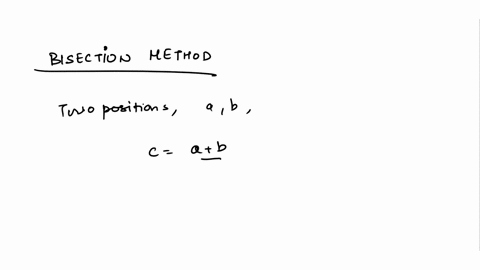 BISECTION METHOD
Two positions, a, b,
c = a + b